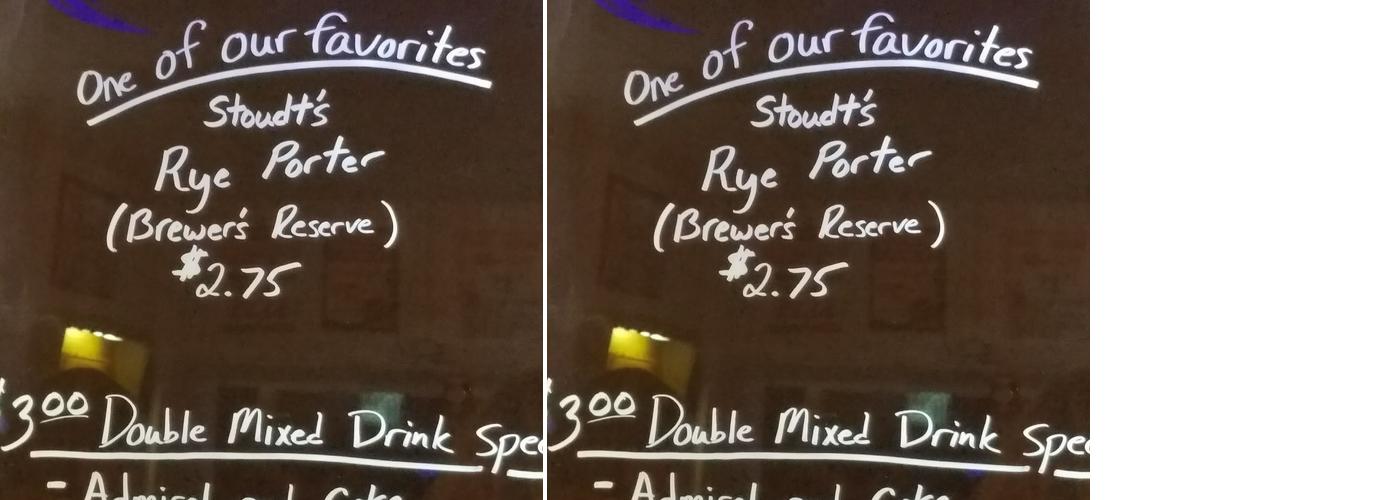 One of our favorites
Stoudt's
Rye Porter
(Brewer's Reserve)
$2.75
$3.00 Double Mixed Drink
-
One of our favorites
Stoudt's
Rye Porter
(Brewer's Reserve)
$2.75
$3.00 Double Mixed Drink
-